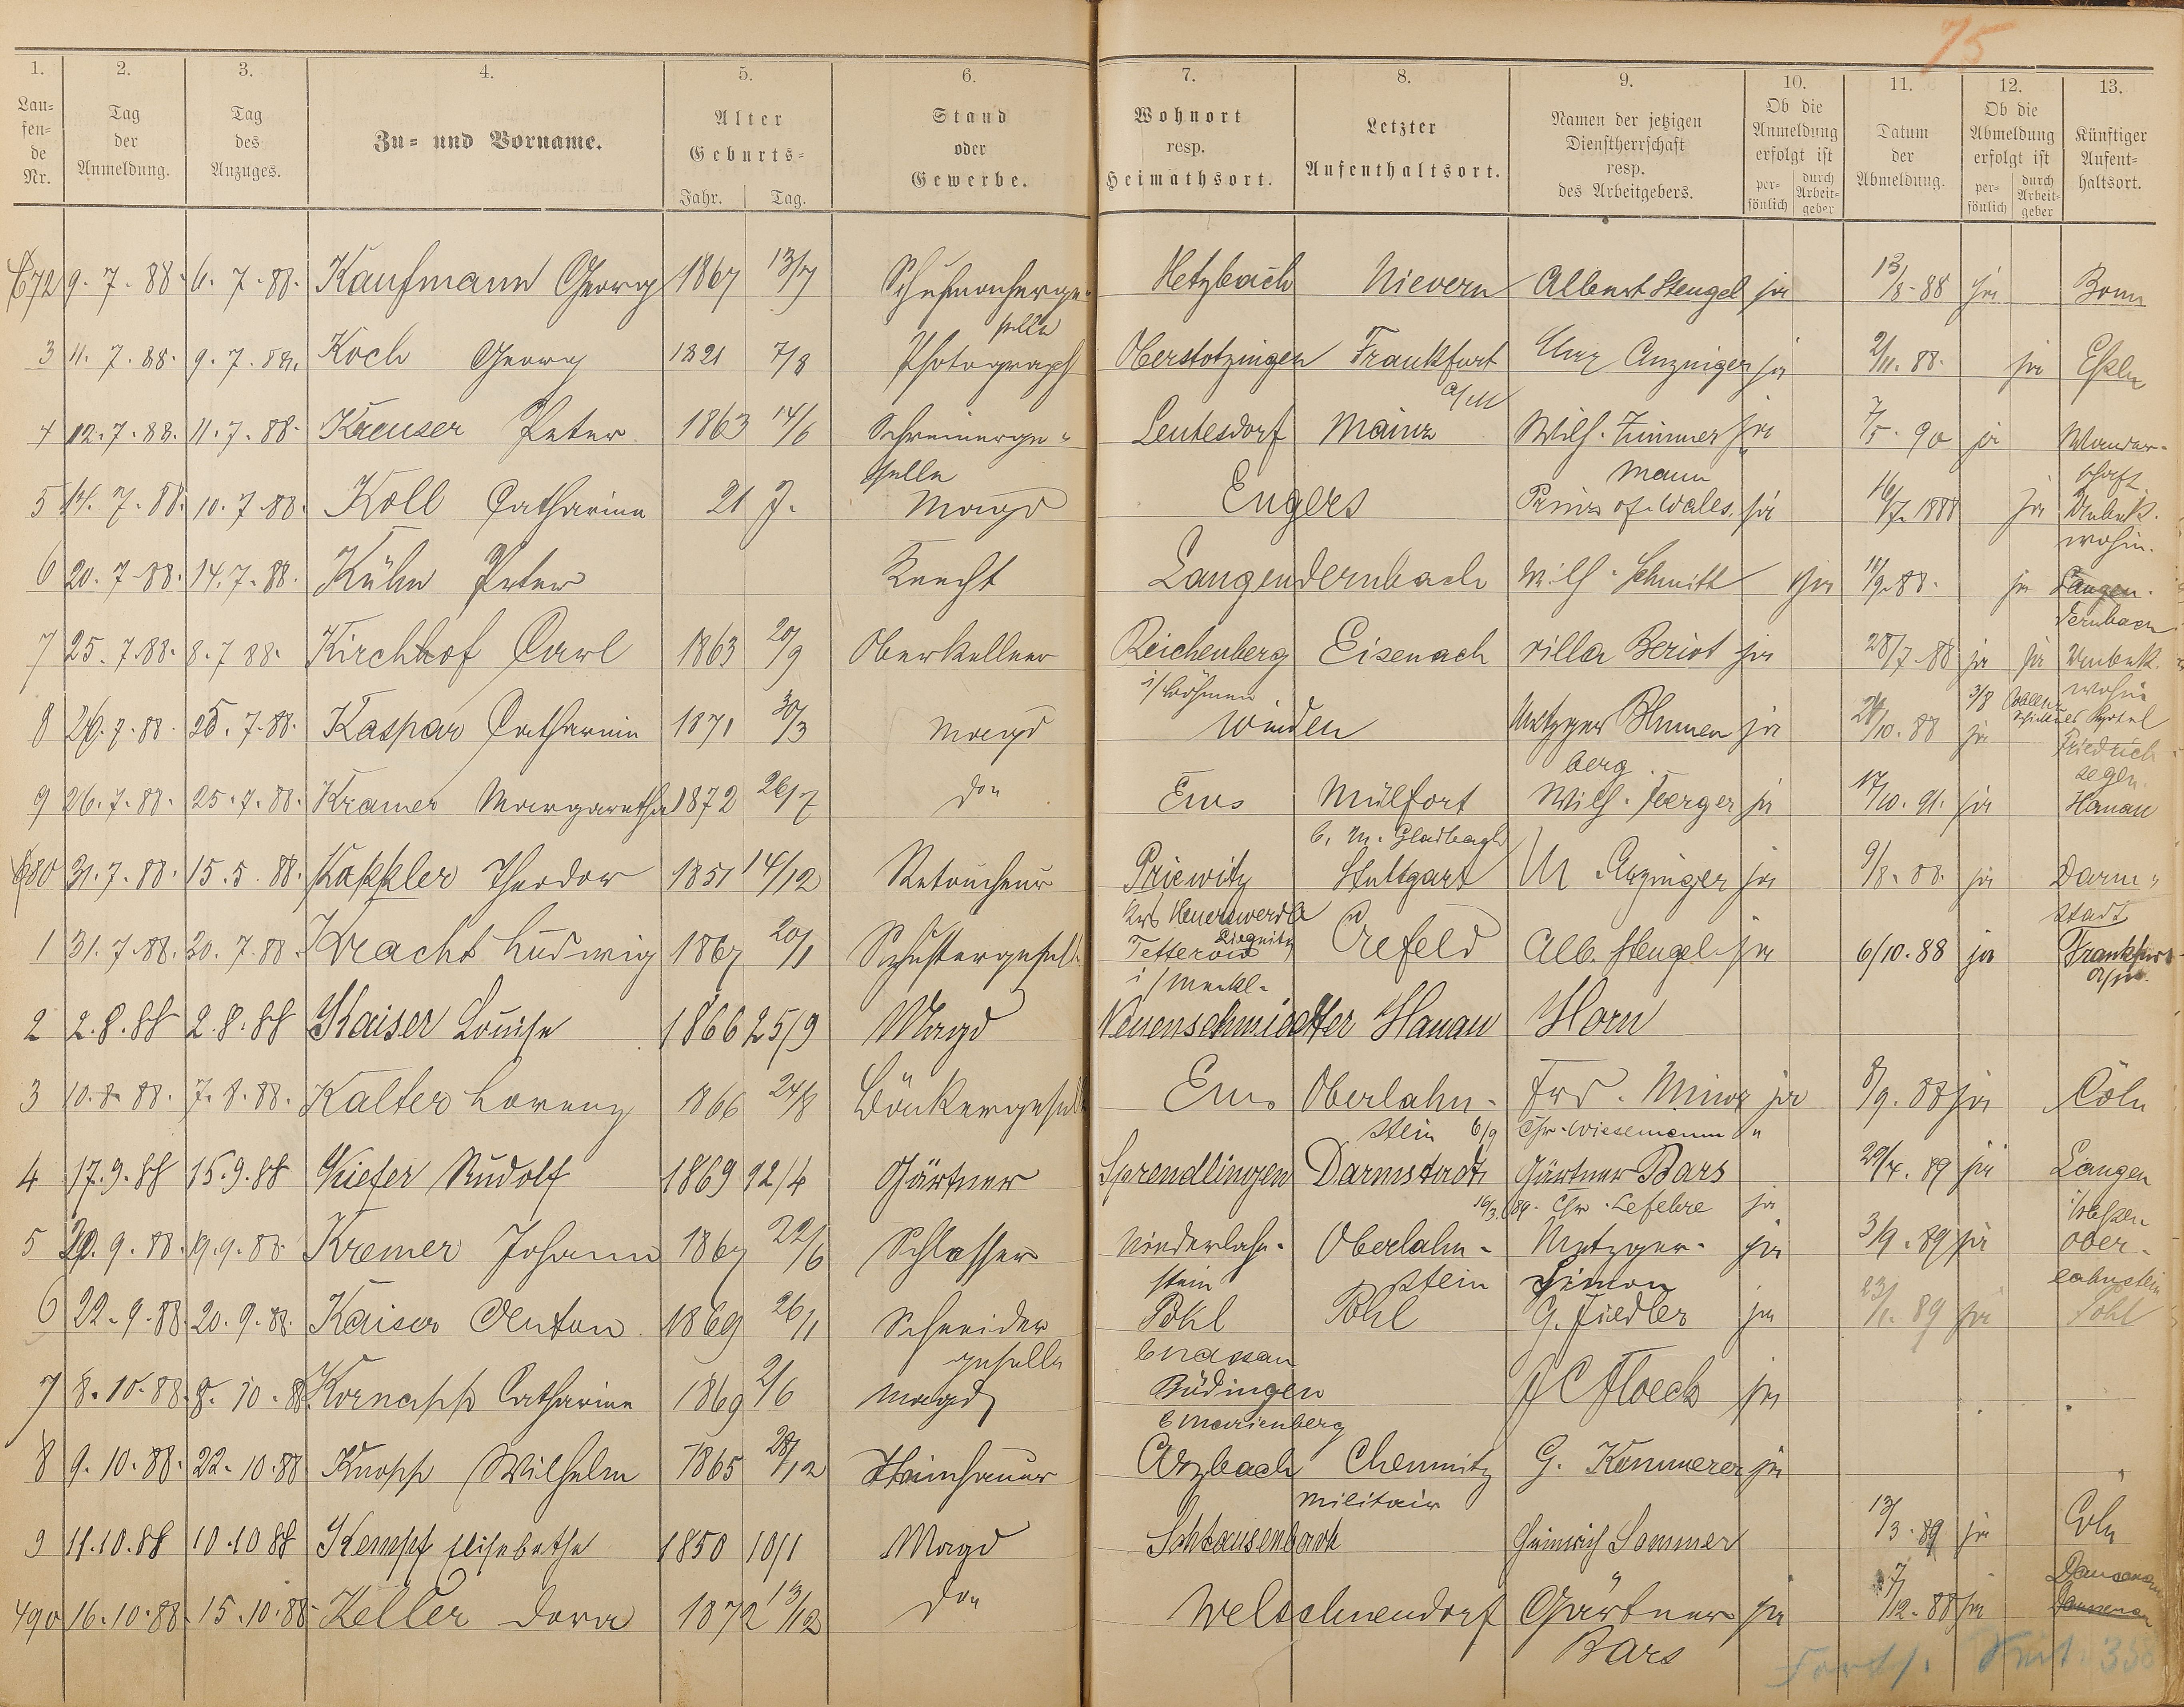 75
1. 2. 3. 4. 5. 6. 7. 8. 9. 10. 11. 12. 13.
Lau-
fen-
de
Nr.
Tag
der
Anmeldung.
Tag
des
Anzuges.
Zu- und Vorname.
Alter
Geburts-
Jahr. Tag.
Stand
oder
Gewerbe.
Wohnort
resp.
Heimathsort.
Letzter
Aufenthaltsort.
Namen der jetzigen
Dienstherrschaft
resp.
des Arbeitgebers.
Ob die
Anmeldung
erfolgt ist
per-
sönlich
durch
Arbeit-
geber
Datum
der
Abmeldung.
Ob die
Abmeldung
erfolgt ist
per-
sönlich
durch
Arbeit-
geber
Künftiger
Aufent-
haltsort.
672 9. 7. 88. 6. 7. 88. Kaufmann Georg 1867 13/7 Schuhmacherge- Hetzbach Nievern Albert Stengel ja 13/8. 88 ja Bonn
selle
3 11. 7. 88. 9. 7. 88. Koch Georg 1821 7/8 Photograph Oberstotzingen Frankfurt Anzinger ja 2/11. 88. ja
a/M
4 12. 7. 88. 11. 7. 88. Kaeuser Peter 1863 14/6 Schreinerge- Leutesdorf Mainz Wilh. Zimmer ja 7/5. 90 ja Wander-
selle mann schaft.
5 14. 7. 88. 10. 7. 88. Koll Catharina 21 J. Magd Engers Prinz of Wales. ja 16/7. 1888 ja Unbek.
wohin.
6 20. 7. 88. 14. 7. 88. Kühn Peter Knecht Langendernbach Wilh. Schmitt ja 11/9. 88. ja Langen-
dernbach
7 25. 7. 88. 8. 7 88. Kirchhof Carl 1863 20/9 Oberkellner Reichenberg Eisenach villa Beriot ja 28/7. 88 ja ja Unbek.
i/Böhmen wohin
8 26. 7. 88. 25. 7. 88. Kaspar Catharina 1871 30/3 Magd Winden Metzger Blumen ja 24/10. 88 ja
3/8
berg. Friedrich-
segen.
9 26. 7. 88. 25. 7. 88. Kramer Margaretha 1872 26/7 do Ems Mülfort Wilh. Joerger ja 17/10. 91. ja Hanau
b. M. Gladbach
680 31. 7. 88. 15. 5. 88. Kappler Theodor 1851 14/12 Retoucheur Priewitz Stuttgart Anzinger ja 9/8. 88. ja Darm-
Krs Heuerswerda stadt
Liegnitz
1 31. 7. 88. 30. 7. 88. Kracht Ludwig 1867 20/1 Schustergesell Tetterow Crefeld Alb. Stengel. ja 6/10. 88 ja Frankfurt
i/Meckl. a/M.
2 2. 8. 88 2. 8. 88 Kaiser Louise 1866 25/9 Magd Neuenschmidter Hanau Horn
3 10. 8. 88. 7. 8. 88. Kalter Lorenz 1866 24/8 Bäckergesell Ems Oberlahn- Frd. Minor ja 8/9. 88 ja Cöln
stein 6/9 Chr. Wiesemann
4 17. 9. 88 15. 9. 88 Kiefer Rudolf 1869 12/4 Gärtner Sprendlingen Darmstadt Gärtner Bars 29/4. 89 ja Langen
16/3. 89. Chr. Lefebre ja i/Hessen
5 20. 9. 88. 19. 9. 88. Kremer Johann 1867 22/6 Schlosser Niederlahn- Oberlahn- Metzger ja 3/9. 89 ja Ober-
stein stein Simon lahnstein
6 22. 9. 88 20. 9. 88. Kaiser Anton 1869 26/1 Schneider Pohl Pohl G. Fiedler ja 23/1. 89 ja Pohl
geselle b Nassau
7 8. 10. 88. 8. 10. 88 Kornapp Catharina 1869 2/6 Magd Büdingen J C Floeck ja
b Marienberg
8 9. 10. 88. 22. 10. 88 Knopp Wilhelm 1865 28/12 Steinhauer Arzbach Chemnitz G. Kemmerer ja
Militair
9 11. 10. 88 10. 10 88 Kempf Elisabethe 1850 10/1 Magd Heinrich Sommer 13/3. 89 ja Cöln
490 16. 10. 88. 15. 10. 88 Keller Dora 1872 13/12 do Welschneudorf Gärtner ja 17/12. 88 ja Dausenau
Dausenau
Bars
Forts.